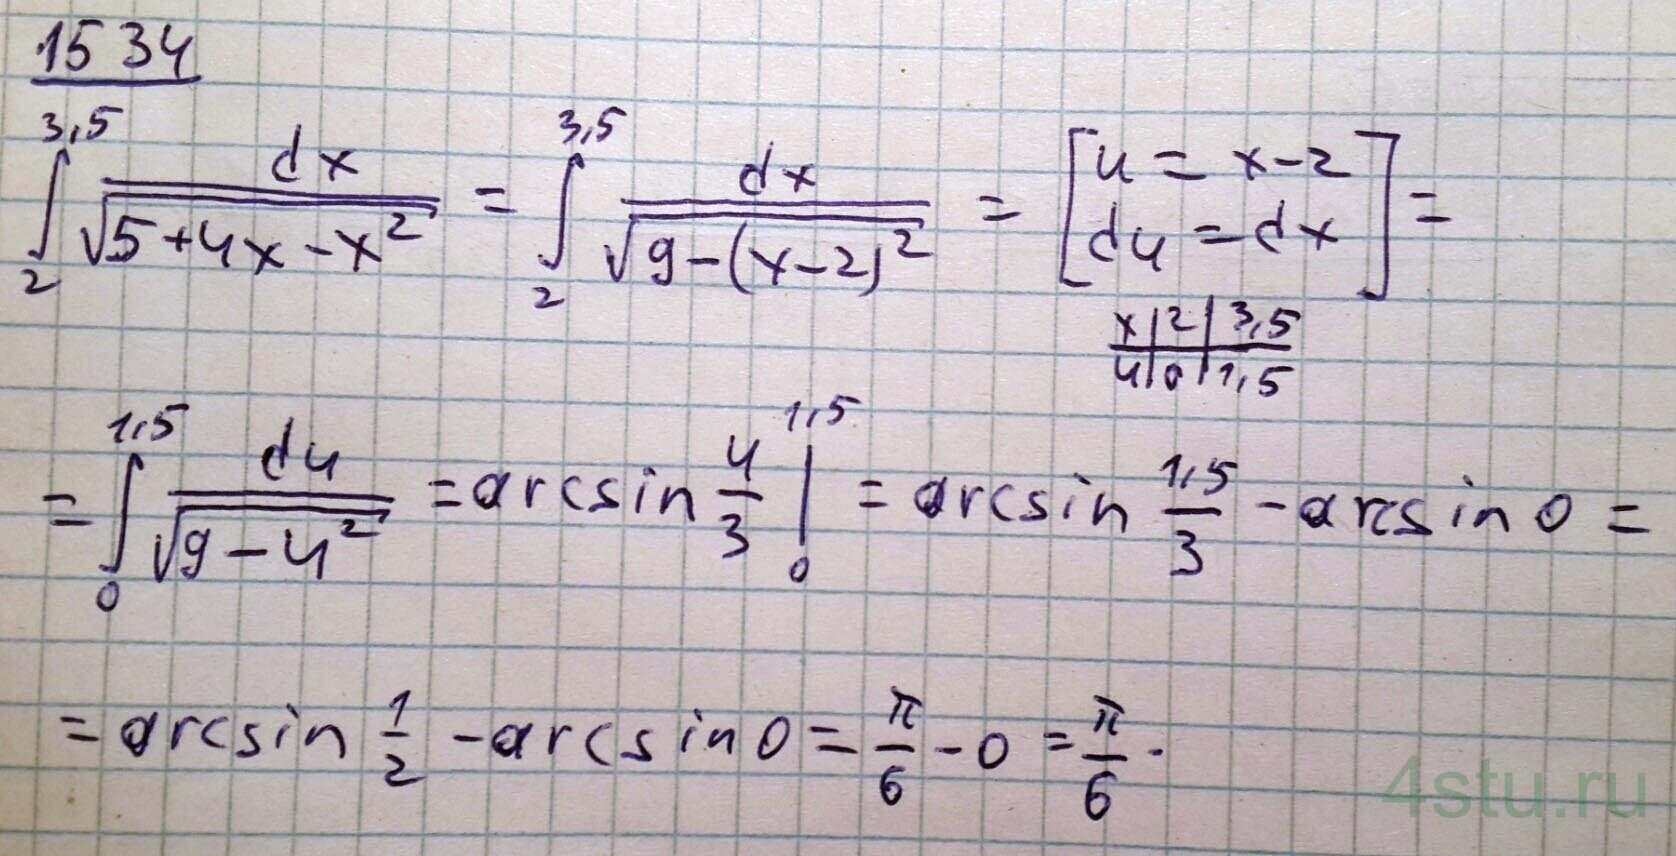 1534
∫₂^3,5 dx/√(5+4x-x²) = ∫₂^3,5 dx/√(9-(x-2)²) = [u = x-2 du = dx] =
x | 2 | 3,5
u | 0 | 1,5
= ∫₀^1,5 du/√(9-u²) = arcsin u/3 |₀^1,5 = arcsin 1,5/3 - arcsin 0 =
= arcsin 1/2 - arcsin 0 = π/6 - 0 = π/6.
4stu.ru